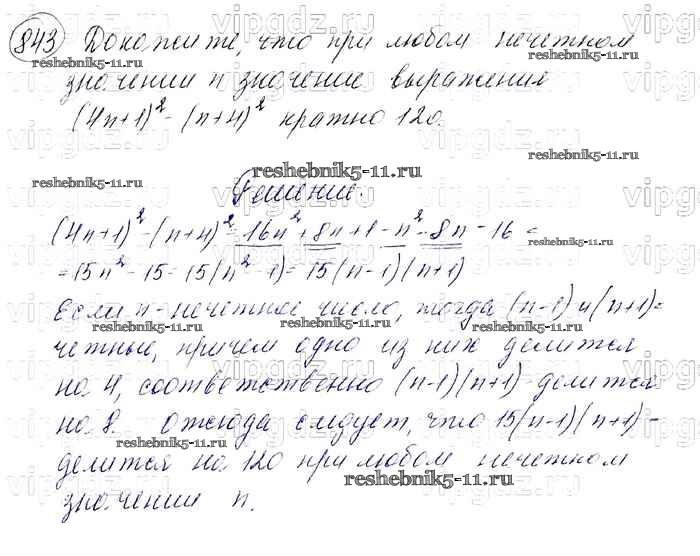 843 Докажите, что при любом нечетном
значении n значение выражения
(4n+1)² - (n+4)² кратно 120.
Решение.
(4n+1)² - (n+4)² = 16n² + 8n + 1 - n² - 8n - 16 =
= 15n² - 15 = 15(n² - 1) = 15(n-1)(n+1)
Если n - нечетное число, тогда (n-1) и (n+1) -
четные, причем одно из них делится
на 4, соответственно (n-1)(n+1) - делится
на 8. Отсюда следует, что 15(n-1)(n+1) -
делится на 120 при любом нечетном
значении n.
reshebnik5-11.ru
vipgdz.com